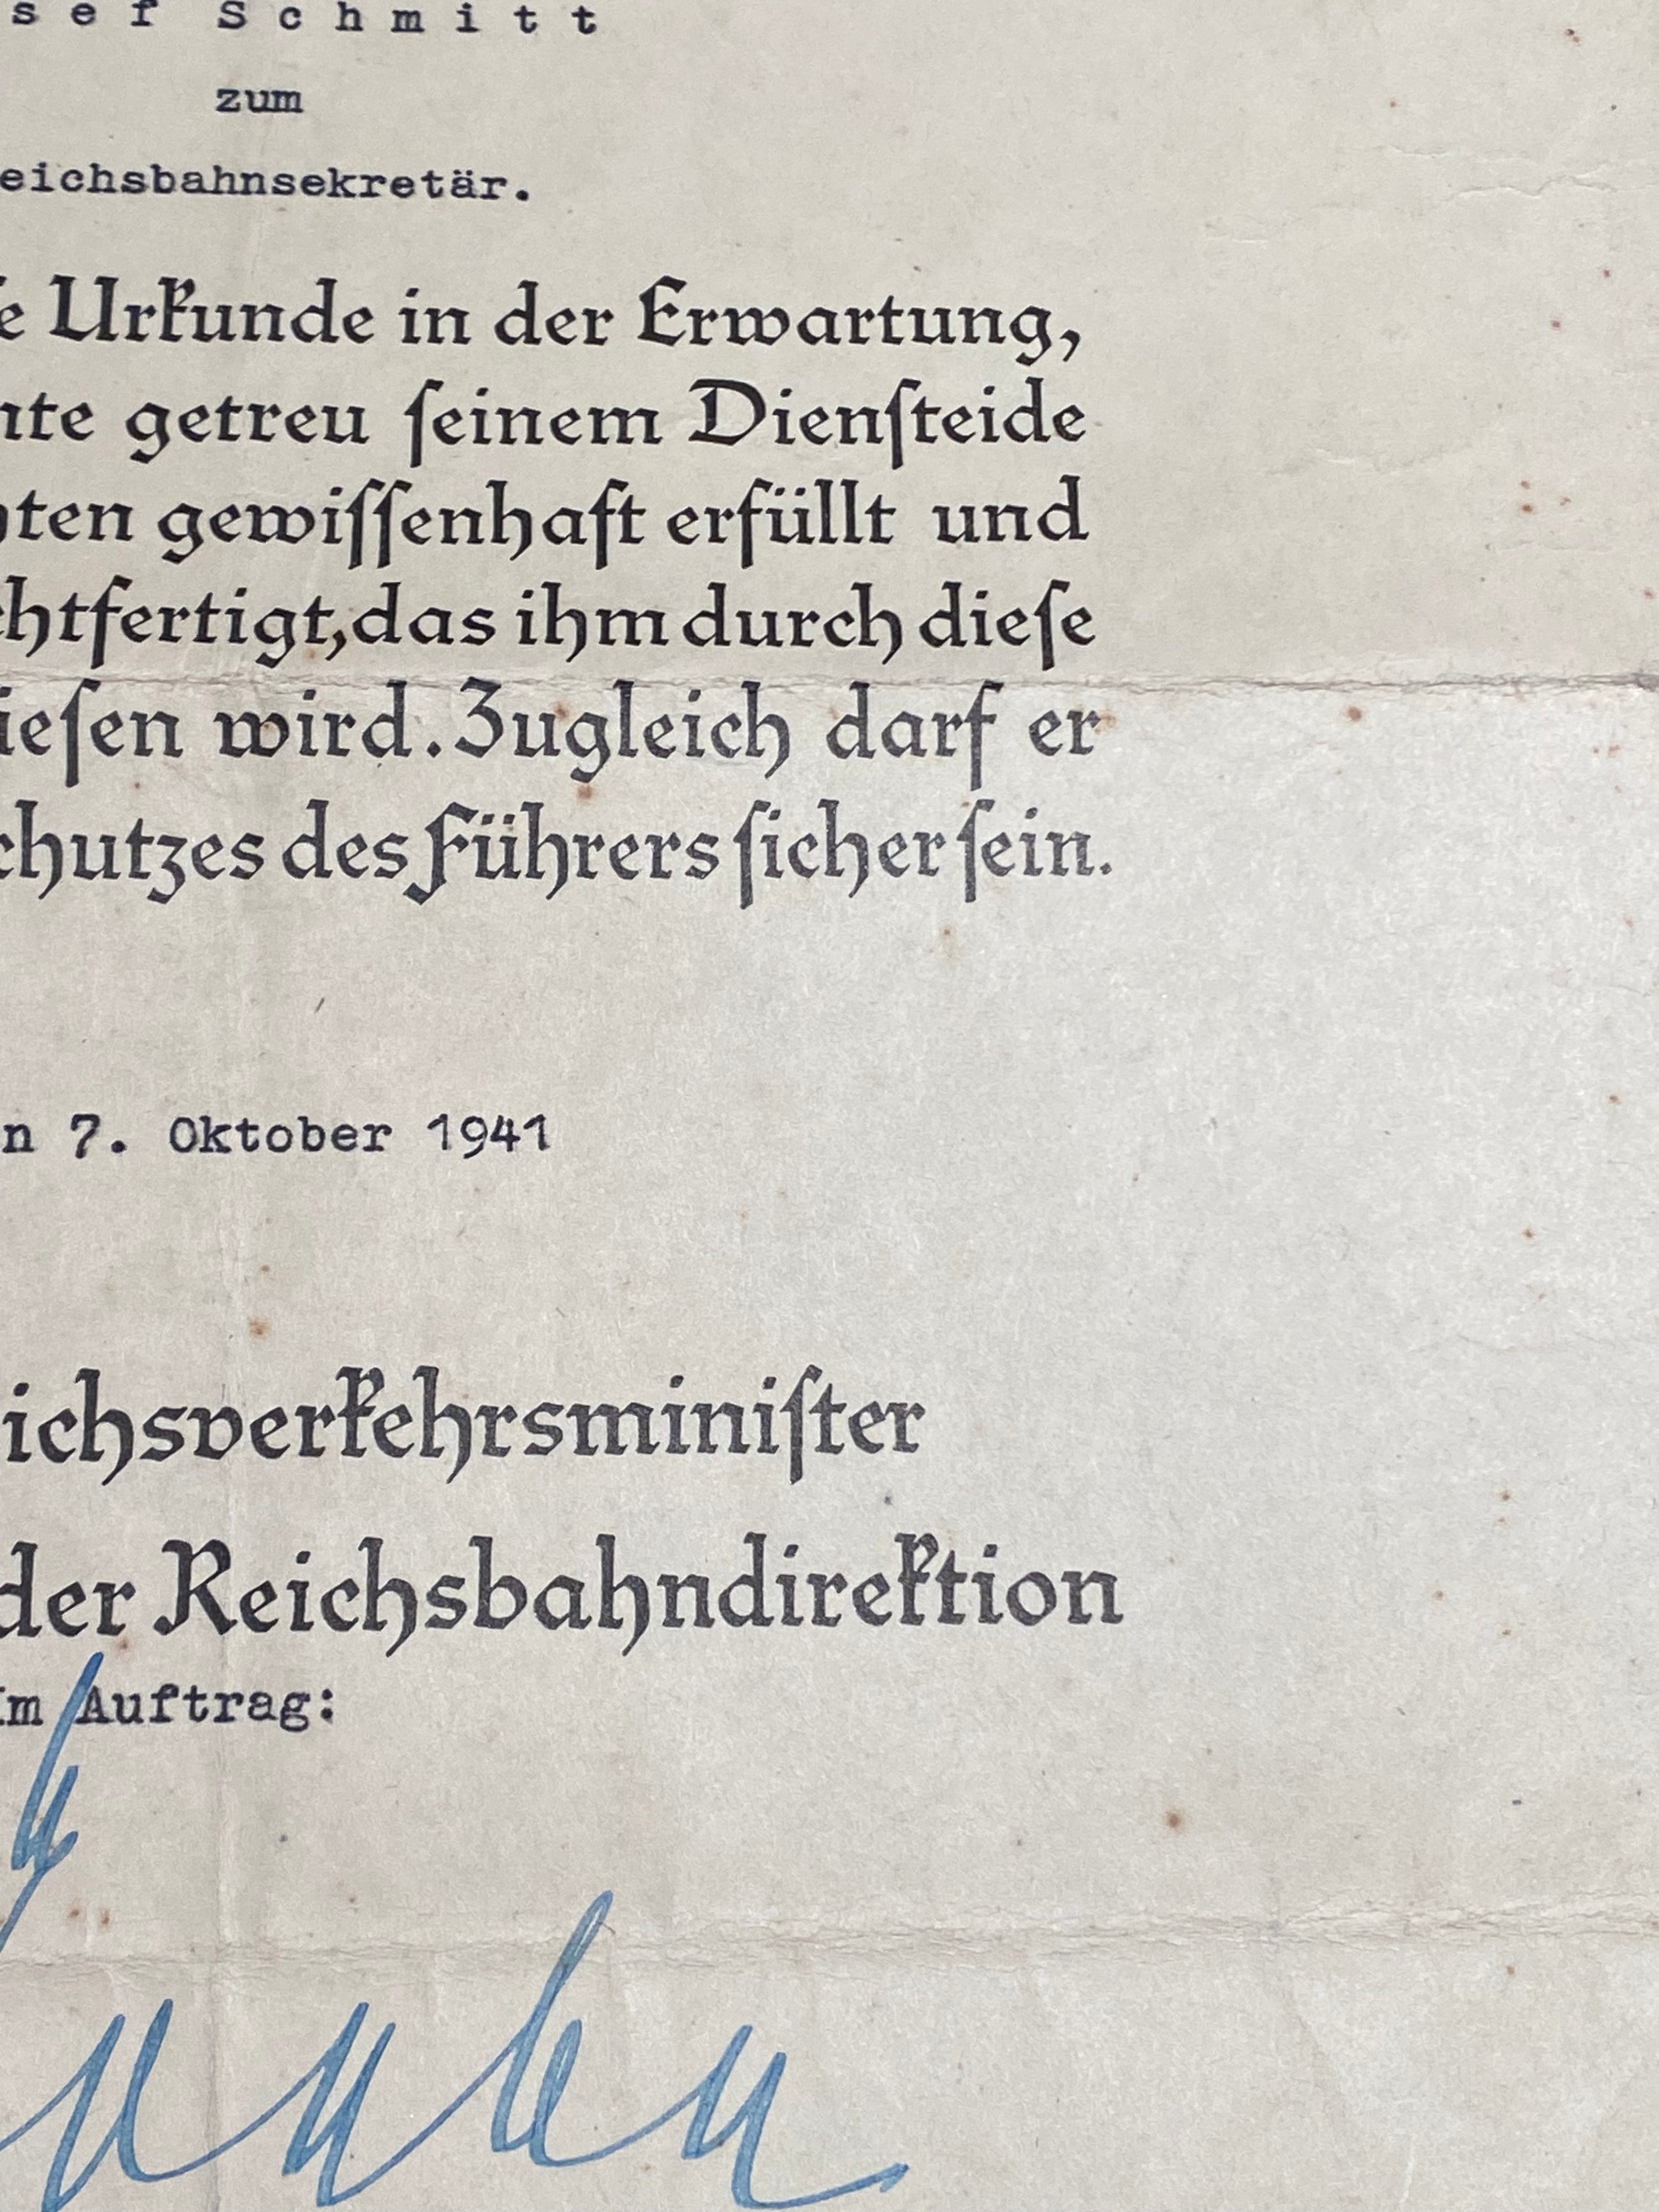 sef Schmitt
zum
eichsbahnsekretär.
e Urkunde in der Erwartung,
nte getreu ſeinem Dienſteide
ten gewiſſenhaft erfüllt und
chtfertigt, das ihm durch dieſe
ieſen wird. Zugleich darf er
chutzes des Führers ſicher ſein.
n 7. Oktober 1941
ichsverkehrsminiſter
der Reichsbahndirektion
Im Auftrag: